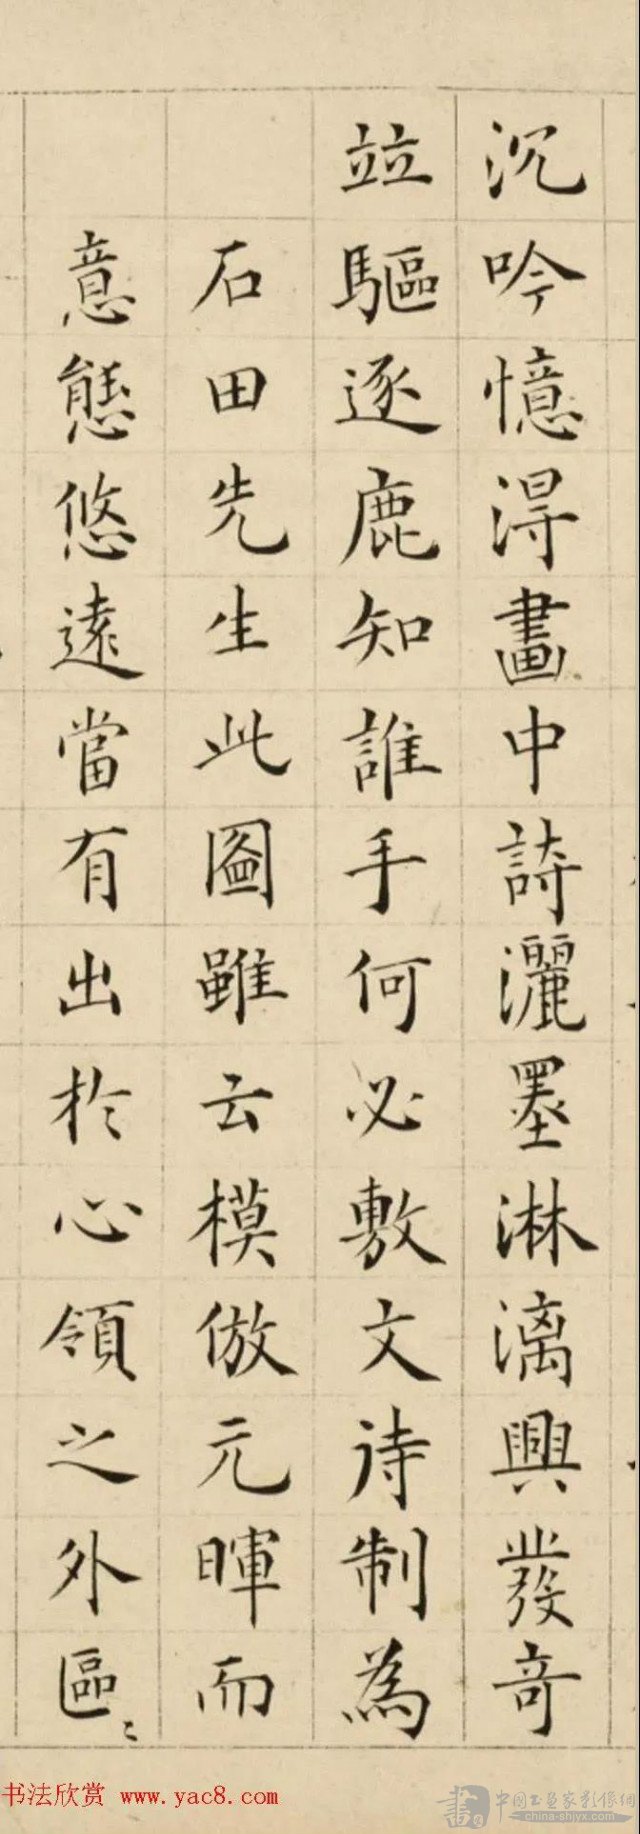 沉吟憶淂畫中詩灑墨淋漓興發奇
竝驅逐鹿知誰手何必敷文待制為
石田先生此圖雖云模倣元暉而
意態悠遠當有出於心領之外區〻
书法欣赏 www.yac8.com
書 中国书画家影像網
china-shjyx.com